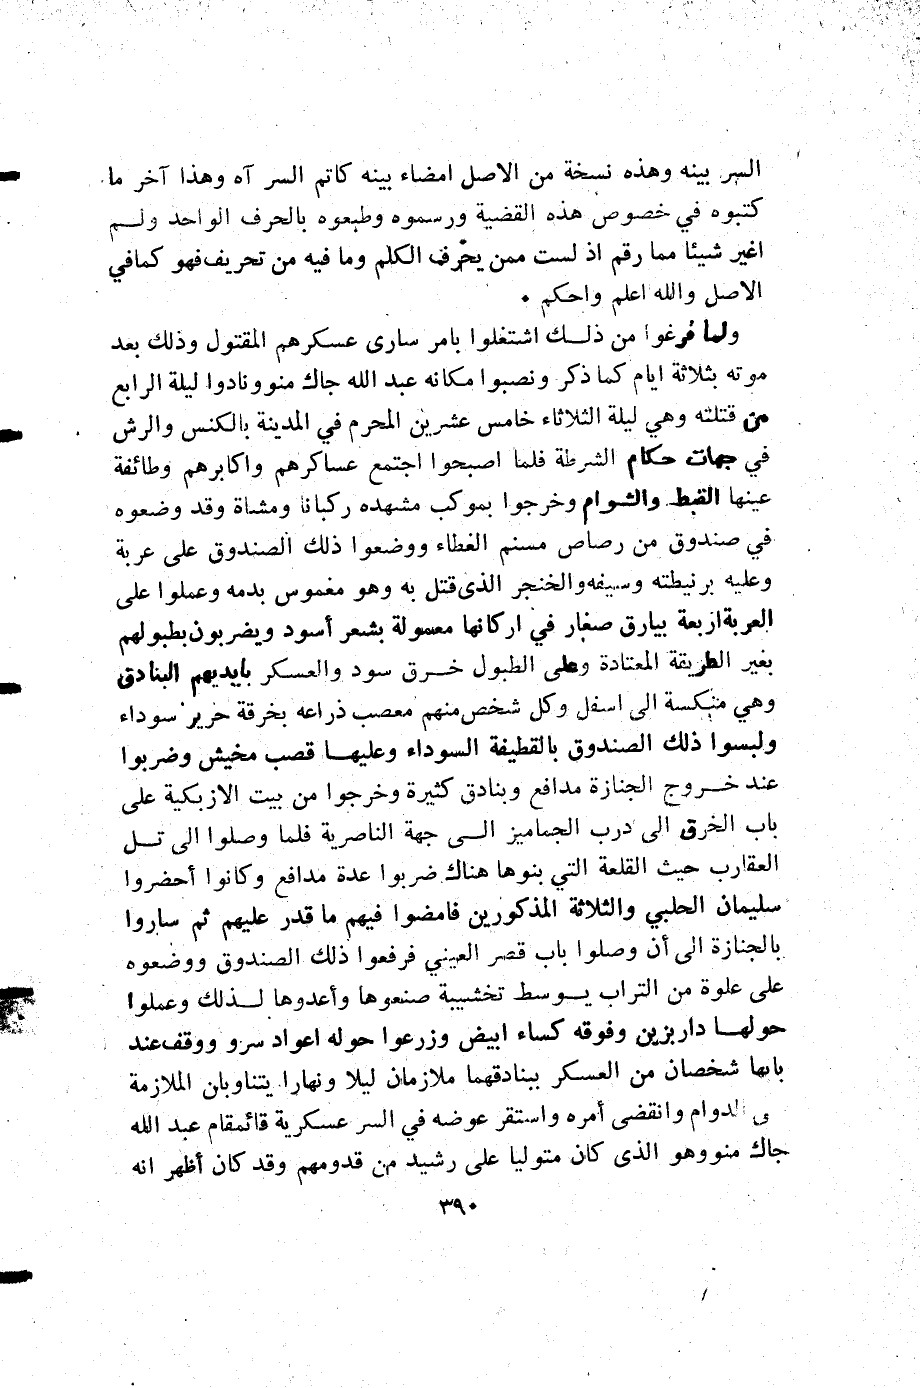 السر بينه وهذه نسخة من الاصل امضاء بينه كاتم السر آه وهذا آخر ما
كتبوه في خصوص هذه القضية ورسموه وطبعوه بالحرف الواحد ولم
اغير شيئا مما رقم اذ لست ممن يحرّف الكلم وما فيه من تحريف فهو كما في
الاصل والله اعلم واحكم .
ولما فرغوا من ذلك اشتغلوا بامر سارى عسكرهم المقتول وذلك بعد
موته بثلاثة ايام كما ذكر ونصبوا مكانه عبد الله جاك منو ونادوا ليلة الرابع
من قتلته وهي ليلة الثلاثاء خامس عشرين المحرم في المدينة بالكنس والرش
في جهات حكام الشرطة فلما اصبحوا اجتمع عساكرهم واكابرهم وطائفة
عينها القبط والشوام وخرجوا بموكب مشهده ركبانا ومشاة وقد وضعوه
في صندوق من رصاص مسنم الغطاء ووضعوا ذلك الصندوق على عربة
وعليه برنيطته وسيفه والخنجر الذى قتل به وهو مغموس بدمه وعملوا على
العربة اربعة بيارق صغار في اركانها معمولة بشعر أسود ويضربون بطبولهم
بغير الطريقة المعتادة وعلى الطبول خرق سود والعسكر بأيديهم البنادق
وهي منكسة الى اسفل وكل شخص منهم معصب ذراعه بخرقة حرير سوداء
ولبسوا ذلك الصندوق بالقطيفة السوداء وعليها قصب مخيش وضربوا
عند خروج الجنازة مدافع وبنادق كثيرة وخرجوا من بيت الازبكية على
باب الخرق الى درب الجماميز الى جهة الناصرية فلما وصلوا الى تل
العقارب حيث القلعة التي بنوها هناك ضربوا عدة مدافع وكانوا أحضروا
سليمان الحلبي والثلاثة المذكورين فامضوا فيهم ما قدر عليهم ثم ساروا
بالجنازة الى أن وصلوا باب قصر العيني فرفعوا ذلك الصندوق ووضعوه
على علوة من التراب بوسط تخشيبة صنعوها وأعدوها لذلك وعملوا
حولها داربزين وفوقه كساء ابيض وزرعوا حوله اعواد سرو ووقف عند
بابها شخصان من العسكر ببنادقهما ملازمان ليلا ونهارا يتناوبان الملازمة
ى الدوام وانقضى أمره واستقر عوضه في السر عسكرية قائمقام عبد الله
جاك منو وهو الذى كان متوليا على رشيد من قدومهم وقد كان أظهر انه
٣٩٠